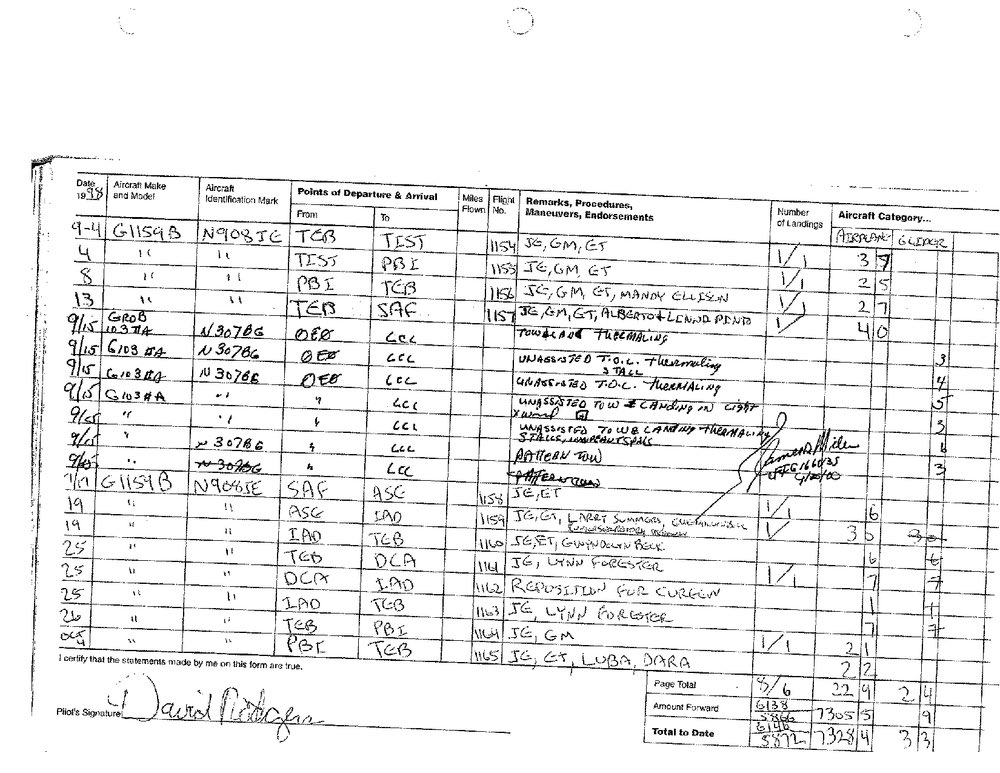 Date 1998 Aircraft Make and Model Aircraft Identification Mark Points of Departure & Arrival From To Miles Flown Flight No. Remarks, Procedures, Maneuvers, Endorsements Number of Landings Aircraft Category... AIRPLANE GLIDER
9-4 G1159B N908JE TEB TIST 1154 JE, GM, ET 1/1 3 7
4 " " TIST PBI 1155 JE, GM, ET 1/1 2 5
8 " " PBI TEB 1156 JE, GM, ET, MANDY ELLISON 1/1 2 7
13 " " TEB SAF 1157 JE, GM, ET, ALBERTO & LINDA PINTO 1/ 4 0
9/15 GROB 103 IIA N307BG LCL THERMALING 3
9/15 G103 IIA N307BG LCL UNASSISTED T.O.L. THERMALING STALL 4
9/15 G103 IIA N307BG LCL UNASSISTED T.O.L. THERMALING 5
9/15 G103 IIA " " LCL UNASSISTED TOW & LANDING IN LIGHT
" " " LCL UNASSISTED TOW & LANDING THERMALING
" N307BG " LCL PATTERN TOW 3
" N307BG " LCL PATTERN TOW
G1159B N908JE SAF ASE 1158 JE, ET 1/1 6
19 " " ASE IAD 1159 JE, ET, LARRY SUMMERS, 1/ 3 0
19 " " IAD TEB 1160 JE, ET, GWENDOLYN BECK 6
25 " " TEB DCA 1161 JE, LYNN FORESTER 1/1 7
25 " " DCA IAD 1162 REPOSITION FOR CURFEW 1
25 " " IAD TEB 1163 JE, LYNN FORESTER 7
26 " " TEB PBI 1164 JE, GM 1/1 2 1
OCT 4 " " PBI TEB 1165 JE, ET, LUBA, DARA 2 2
I certify that the statements made by me on this form are true.
Page Total 8/6 22 9 2 4
Pilot's Signature David Rodgers
Amount Forward 6138 5866 7305 5 9
Total to Date 6146 5872 7328 4 3 3